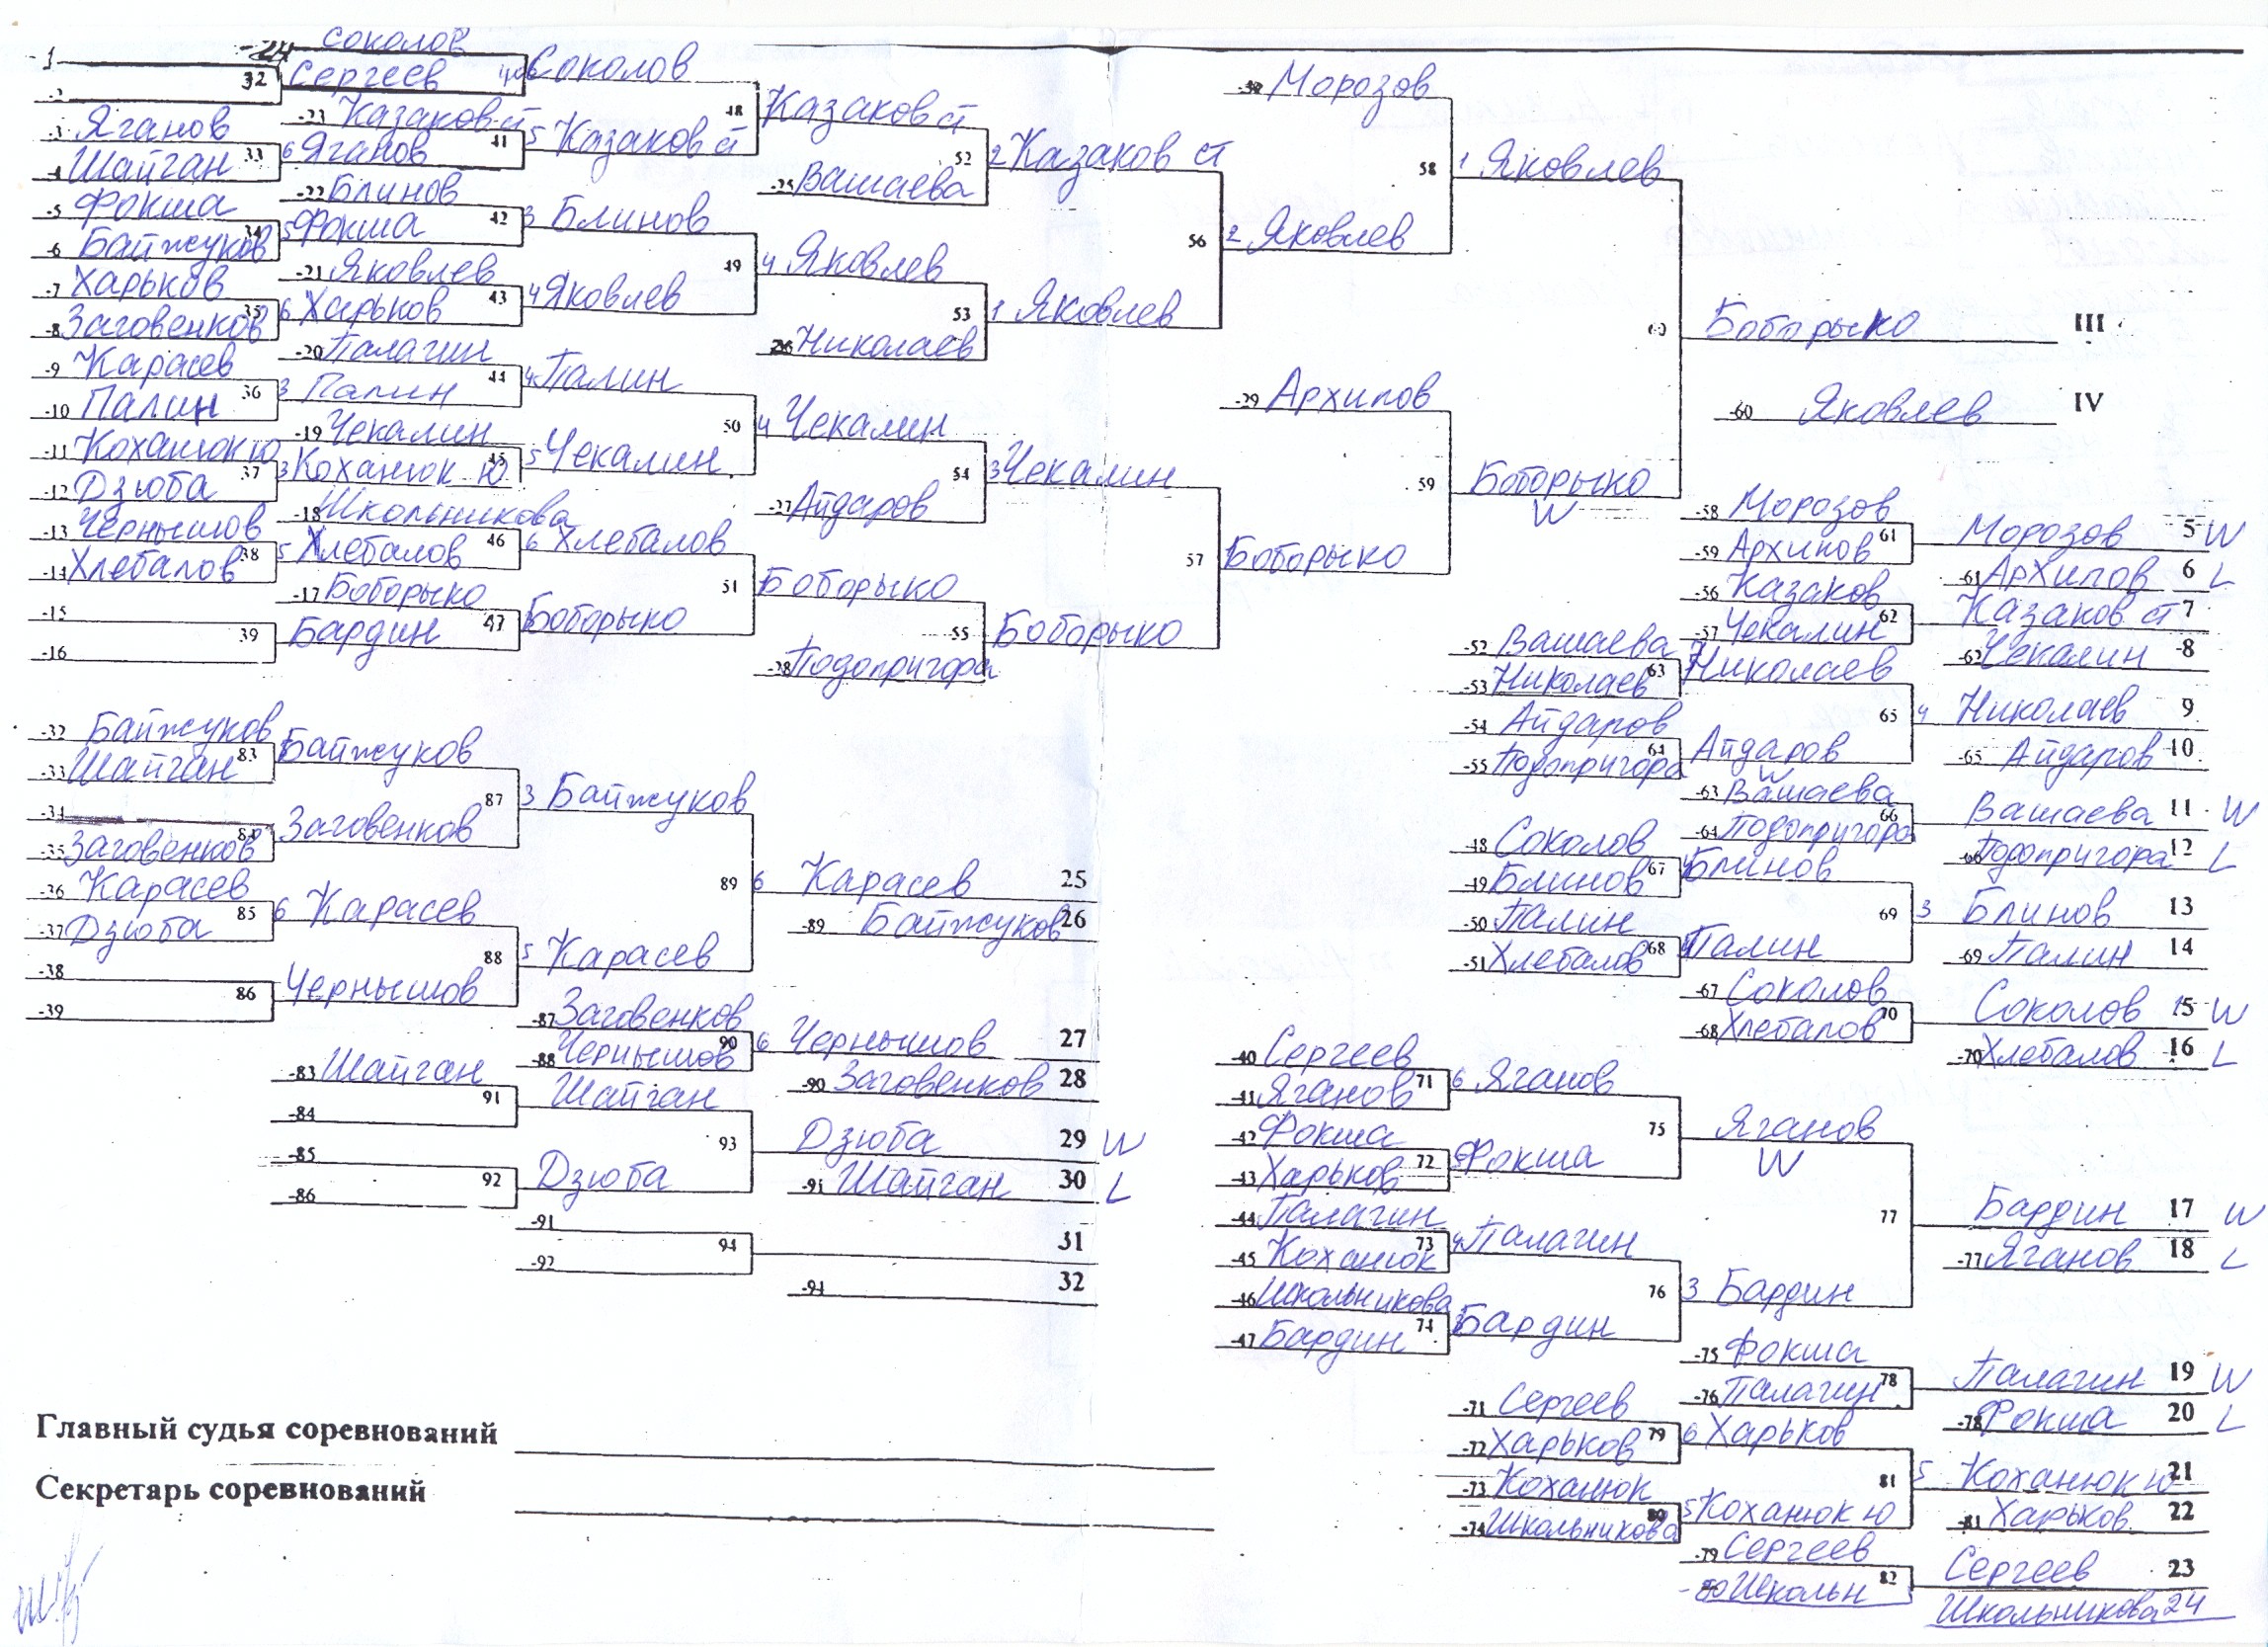 -1
-24 Соколов
32 Сергеев 40 Соколов
-2
-23 Казаков ст 48 Казаков ст
-3 Яганов
33 6 Яганов 41 5 Казаков ст
-4 Шайган
-22 Блинов
52 2 Казаков ст
-25 Вашаева
-5 Фокша
34 5 Фокша 42 3 Блинов
-6 Байжуков
-21 Яковлев 49 4 Яковлев
-7 Харьков
35 6 Харьков 43 4 Яковлев
-8 Заговенков
53 1 Яковлев
-26 Николаев
-20 Палагин
-9 Карасев
36 3 Палин 44 4 Палин
-10 Палин
-19 Чекалин 50 4 Чекалин
-11 Коханюк ю
37 3 Коханюк Ю 45 5 Чекалин
-12 Дзюба
54 3 Чекалин
-27 Айдаров
-18 Школьникова
-13 Чернышов
38 5 Хлебалов 46 6 Хлебалов
-14 Хлебалов
-17 Боборыко 51 Боборыко
-15
39 Бардин 47 Боборыко
-16
55 Боборыко
-28 Подопригора
-30 Морозов
58 1 Яковлев
56 2 Яковлев
60 Боборыко III
-60 Яковлев IV
-29 Архипов
59 Боборыко
W
57 Боборыко
-58 Морозов
61 Морозов 5 W
-59 Архипов
-61 Архипов 6 L
-56 Казаков
62 Казаков ст 7
-57 Чекалин
-62 Чекалин 8
-52 Вашаева
63 Николаев
-53 Николаев
65 4 Николаев 9
-54 Айдаров
64 Айдаров
W
-55 Подопригора
-65 Айдаров 10
-63 Вашаева
66 Вашаева 11 W
-64 Подопригора
-66 Подопригора 12 L
-48 Соколов
67 Блинов
-49 Блинов
69 3 Блинов 13
-50 Палин
68 Палин
-51 Хлебалов
-69 Палин 14
-67 Соколов
70 Соколов 15 W
-68 Хлебалов
-70 Хлебалов 16 L
-32 Байжуков
83 Байжуков
-33 Шайган
87 3 Байжуков
-34
84 Заговенков
-35 Заговенков
89 6 Карасев 25
-36 Карасев
-89 Байжуков 26
85 6 Карасев
-37 Дзюба
88 5 Карасев
-38
86 Чернышов
-39
-87 Заговенков
90 6 Чернышов 27
-88 Чернышов
-90 Заговенков 28
-83 Шайган
91 Шайган
-84
93 Дзюба 29 W
-85
92 Дзюба
-91 Шайган 30 L
-86
-91
94 31
-92
-94 32
-40 Сергеев
71 6 Яганов
-41 Яганов
75 Яганов
W
-42 Фокша
72 Фокша
-43 Харьков
77 Бардин 17 W
-44 Палагин
-77 Яганов 18 L
73 4 Палагин
-45 Коханюк
76 3 Бардин
-46 Школьникова
74 Бардин
-47 Бардин
-75 Фокша
78 Палагин 19 W
-76 Палагин
-78 Фокша 20 L
-71 Сергеев
79 6 Харьков
-72 Харьков
81 5 Коханюк ю 21
-73 Коханюк
80 5 Коханюк Ю
-74 Школьникова
-81 Харьков 22
-79 Сергеев
82 Сергеев 23
-80 Школьн
Школьникова 24
Главный судья соревнований
Секретарь соревнований